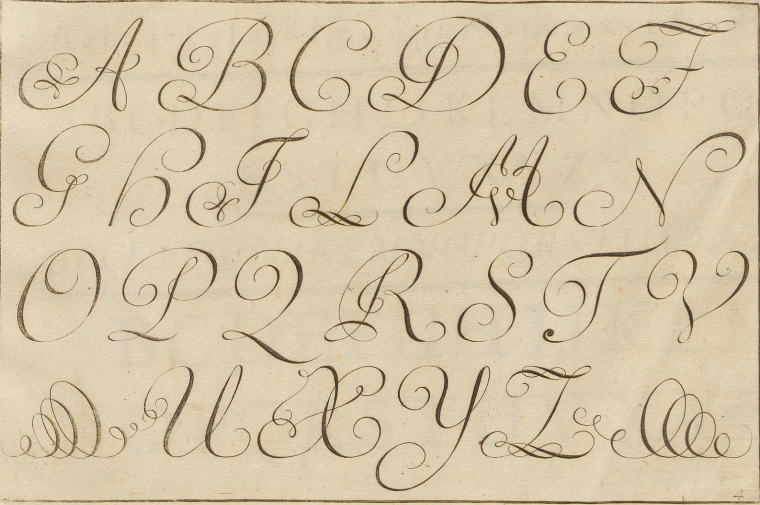 A B C D E F
G h I L M N
O P Q R S T V
U X Y Z
4